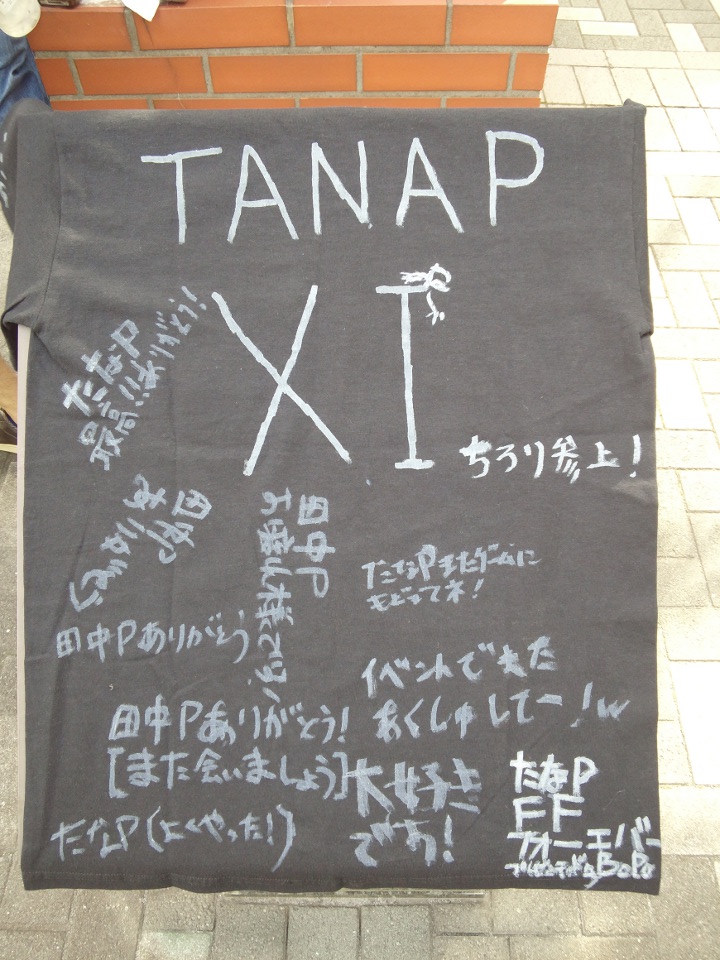 TANAP
XI
たなP
最高!!ありがとう!
ちろり参上!
田中P
お疲れ様でした
たなPまたゲームに
もどってネ!
田中Pありがとう
イベントでまた
あくしゅしてー!w
田中Pありがとう!
[また会いましょう]
大好き
です!
たなP(よくやった!)
たなP
FF
フォーエバー